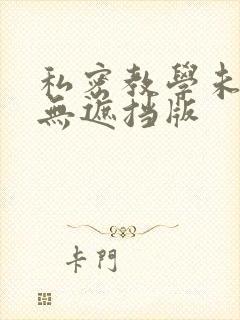 私密教學未
無遮挡版
卡門